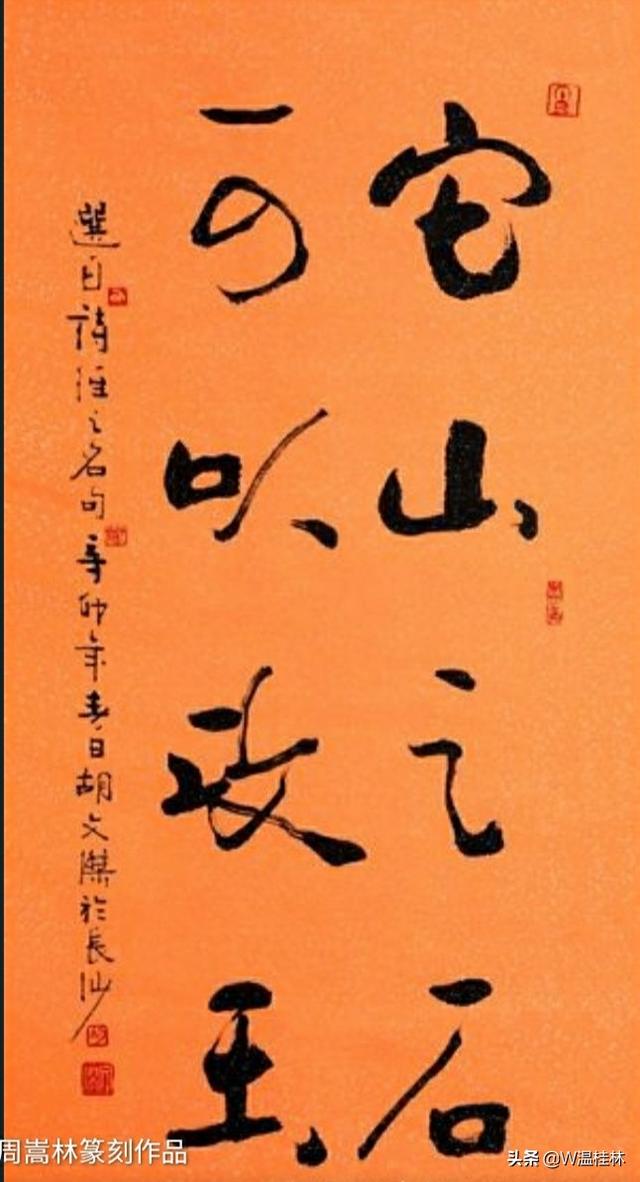 它山之石
可以攻玉
選自詩經之名句辛卯年春日胡文傑於長沙
周嵩林篆刻作品
头条 @W温桂林